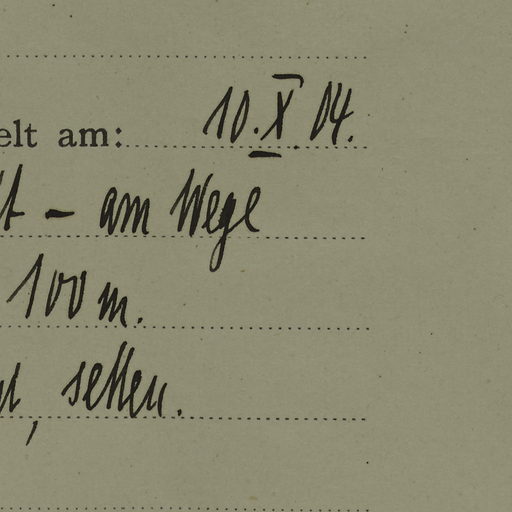 elt am: 10. X. 04.
t – am Wege
100 m.
, selten.